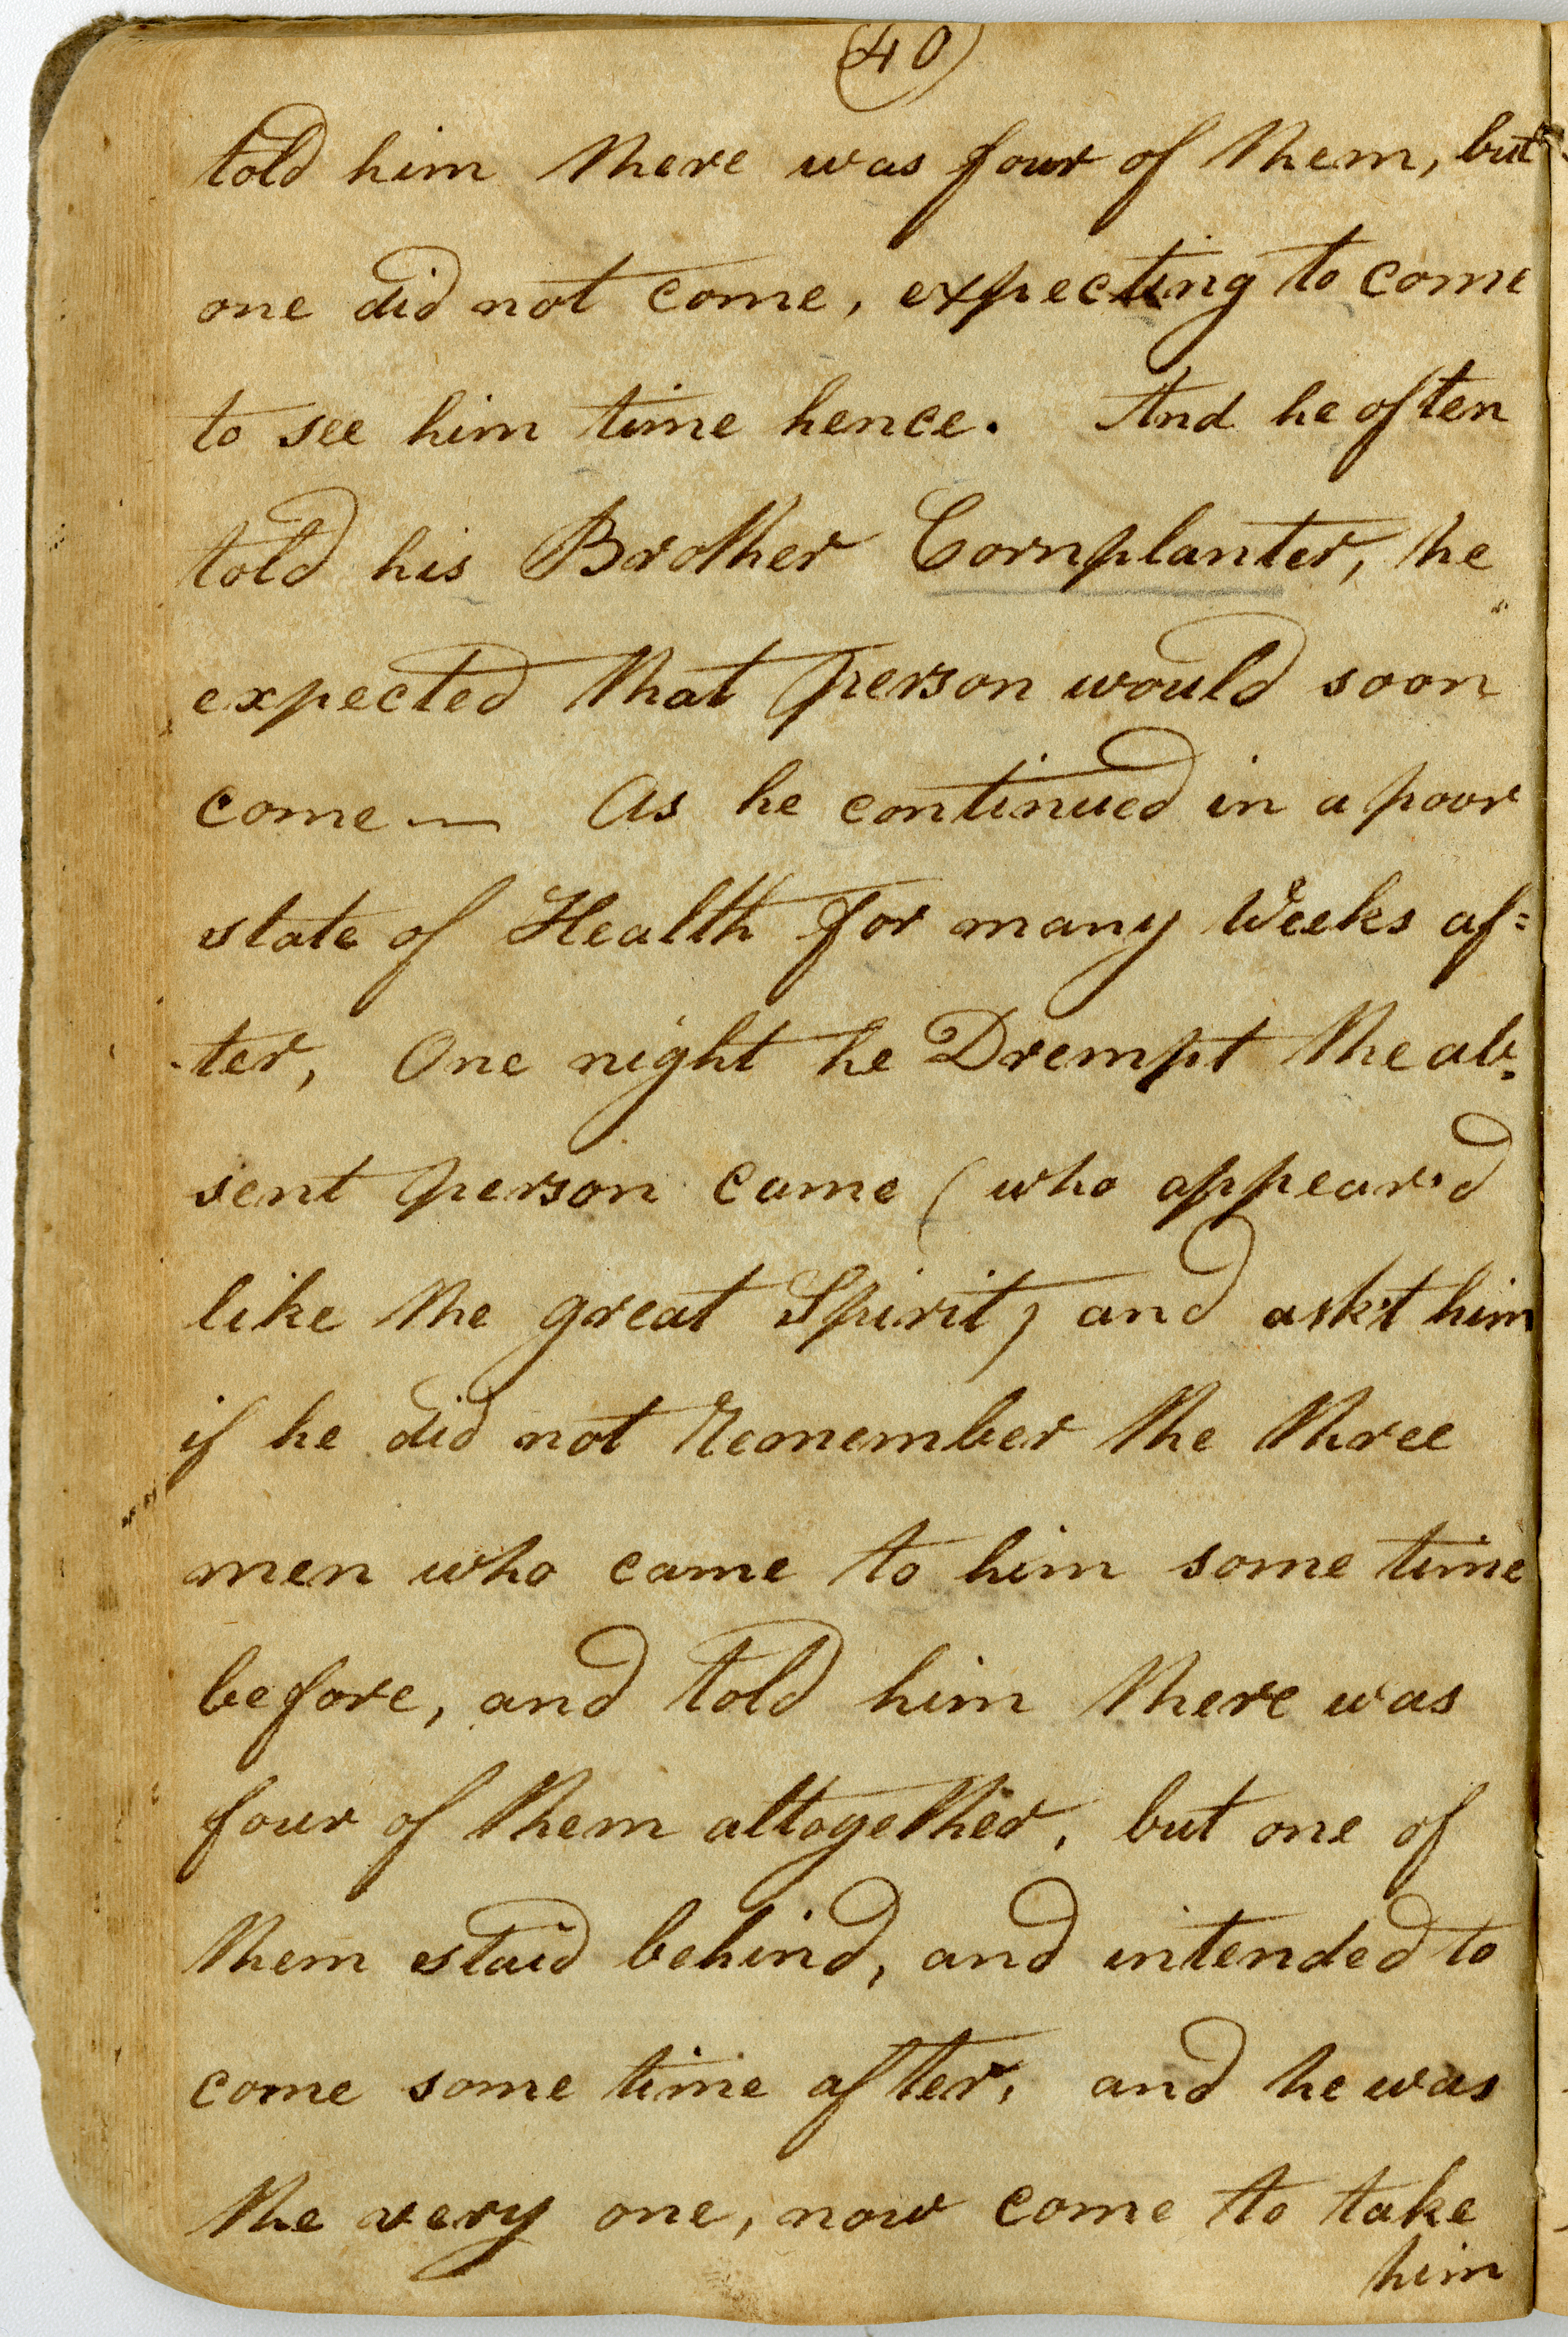 (40)
told him there was four of them, but
one did not come, expecting to come
to see him time hence. And he often
told his Brother Cornplanter, he
expected that person would soon
come — As he continued in a poor
state of Health for many Weeks af=
-ter, One night he Drempt the ab=
sent person came (who appear'd
like the great Spirit) and ask't him
if he did not Remember the three
men who came to him some time
before, and told him there was
four of them altogether, but one of
them staid behind, and intended to
come some time after, and he was
the very one, now come to take
him